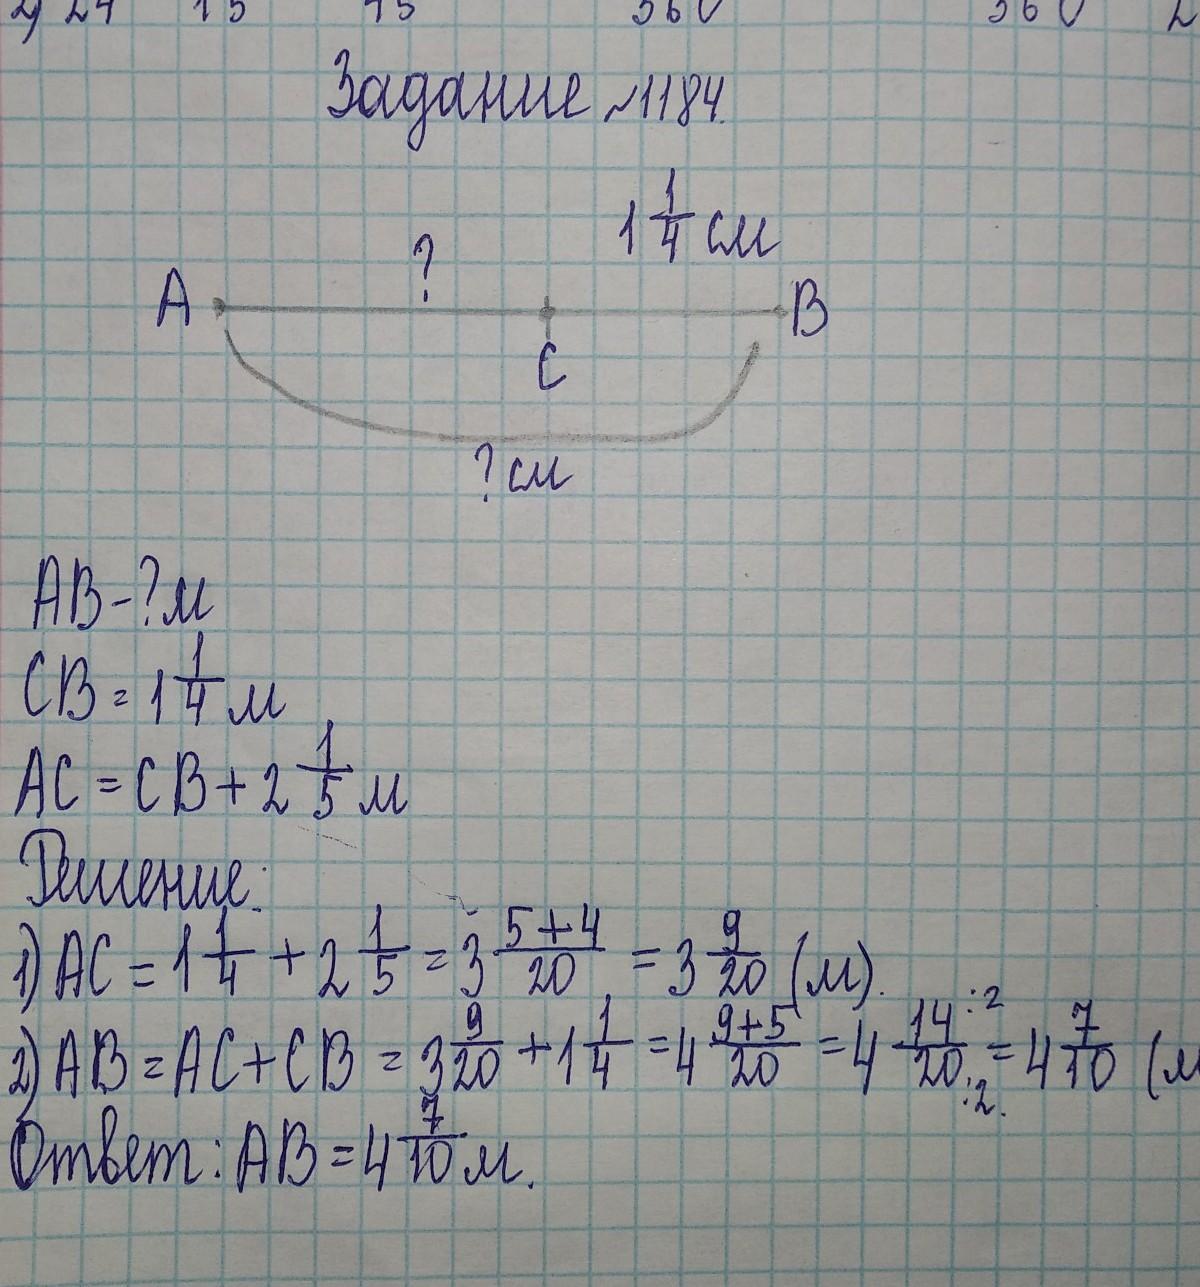 2) 24 15 45 360 360
Задание №1184.
1 1/4 см
?
A B
C
? см
AB - ? м
CB = 1 1/4 м
AC = CB + 2 1/5 м
Решение:
1) AC = 1 1/4 + 2 1/5 = 3 (5+4)/20 = 3 9/20 (м).
2) AB = AC + CB = 3 9/20 + 1 1/4 = 4 (9+5)/20 = 4 14:2/20:2 = 4 7/10 (м
Ответ: AB = 4 7/10 м.